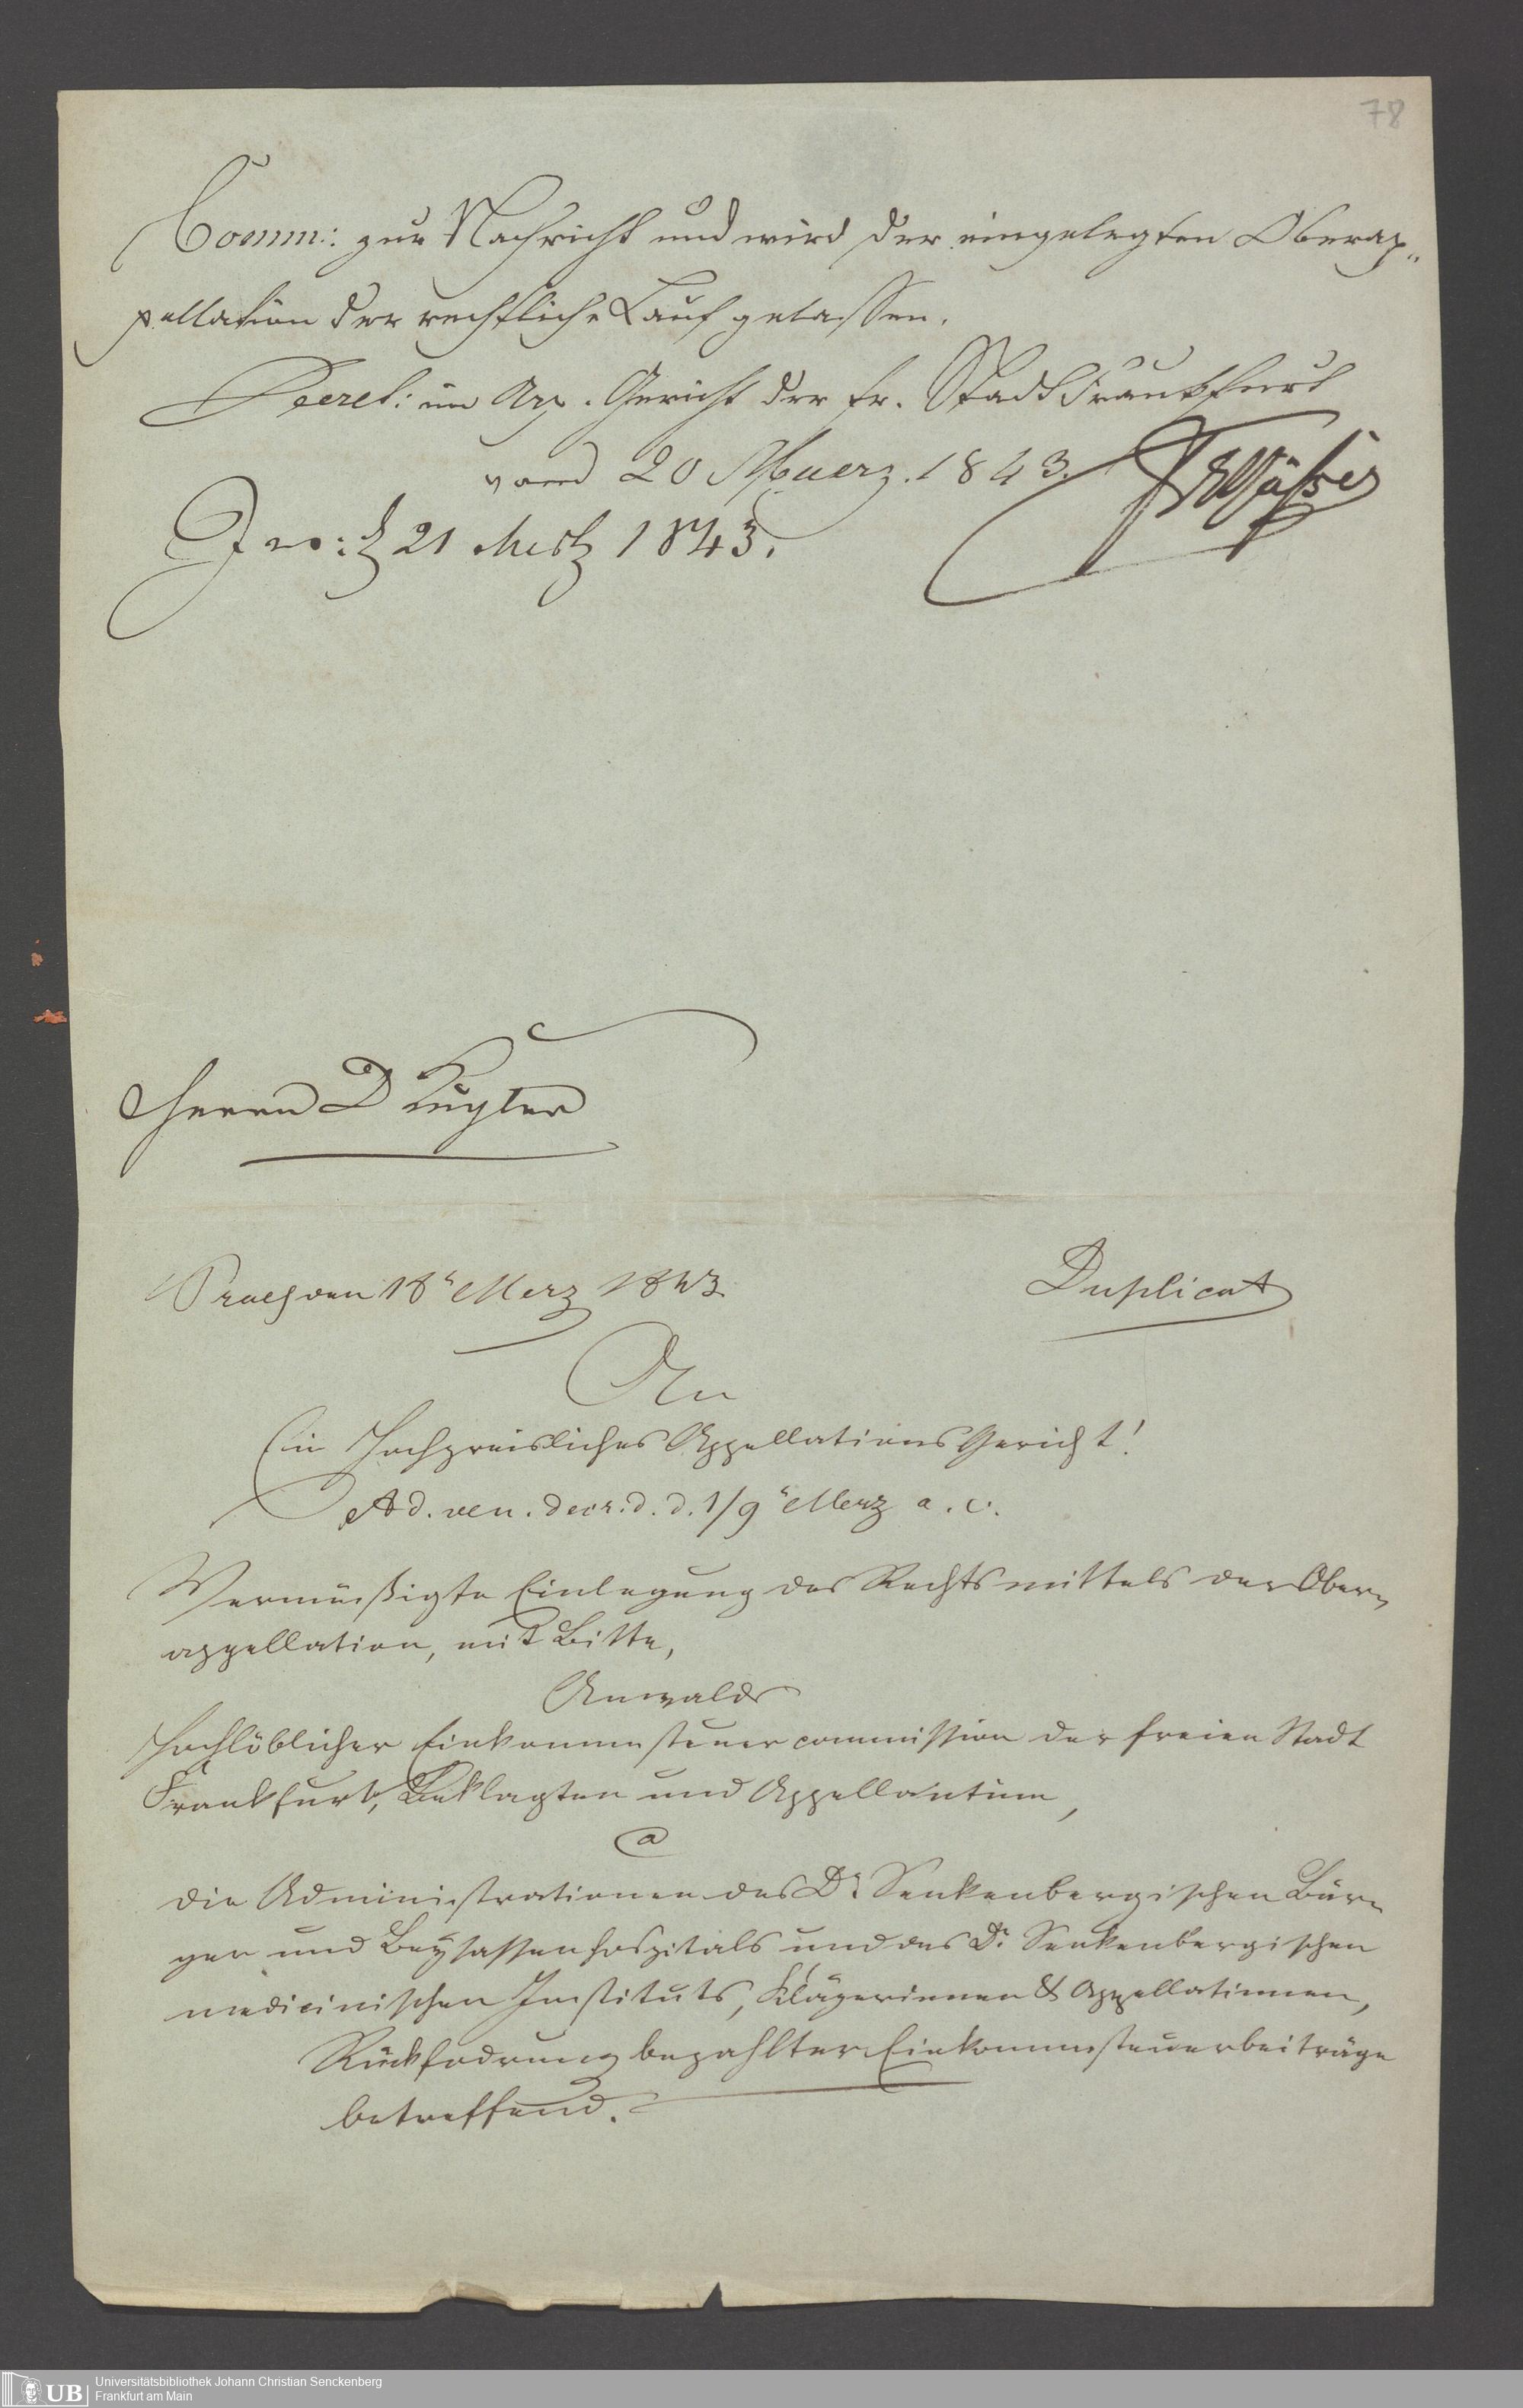 78
Comm: zur Nachricht und wird der eingelegten Oberap„
pellation der rechtliche Lauf gelassen.
Decret: im App. Gericht der fr. Stadt Frankfurt
vom 20 Maerz. 1843.
21 Merz 1843.
Herrn D Kugler
Praes den 18ⁿ Merz 1843
Duplicat
An
Ein Hochpreisliches AppellationsGericht!
Ad. ven. decr. d. d. 1/9ⁿ Merz a. c.
Vermüßigte Einlegung des Rechtsmittels der Ober-
appellation, mit Bitte,
Anwalds
Hochlöblicher Einkommensteuercommission der freien Stadt
Frankfurt, Beklagten und Appellantinn,
a
die Administrationen des Dr Senkenbergischen Bür-
ger und Beysassenhospitals und des Dr Senkenbergischen
medicinischen Instituts, Klägerinnen & Appellatinnen,
Rückfodrung bezahlter Einkommensteuerbeiträge
betreffend.
UB
Universitätsbibliothek Johann Christian Senckenberg
Frankfurt am Main